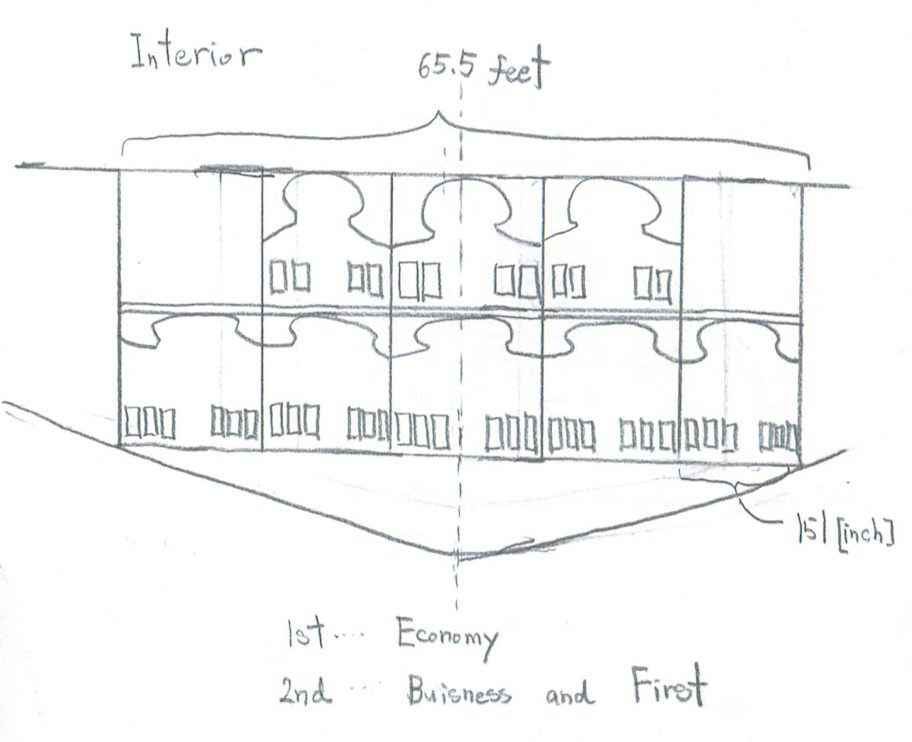 Interior
65.5 feet
151 [inch]
1st .... Economy
2nd ... Buisness and First